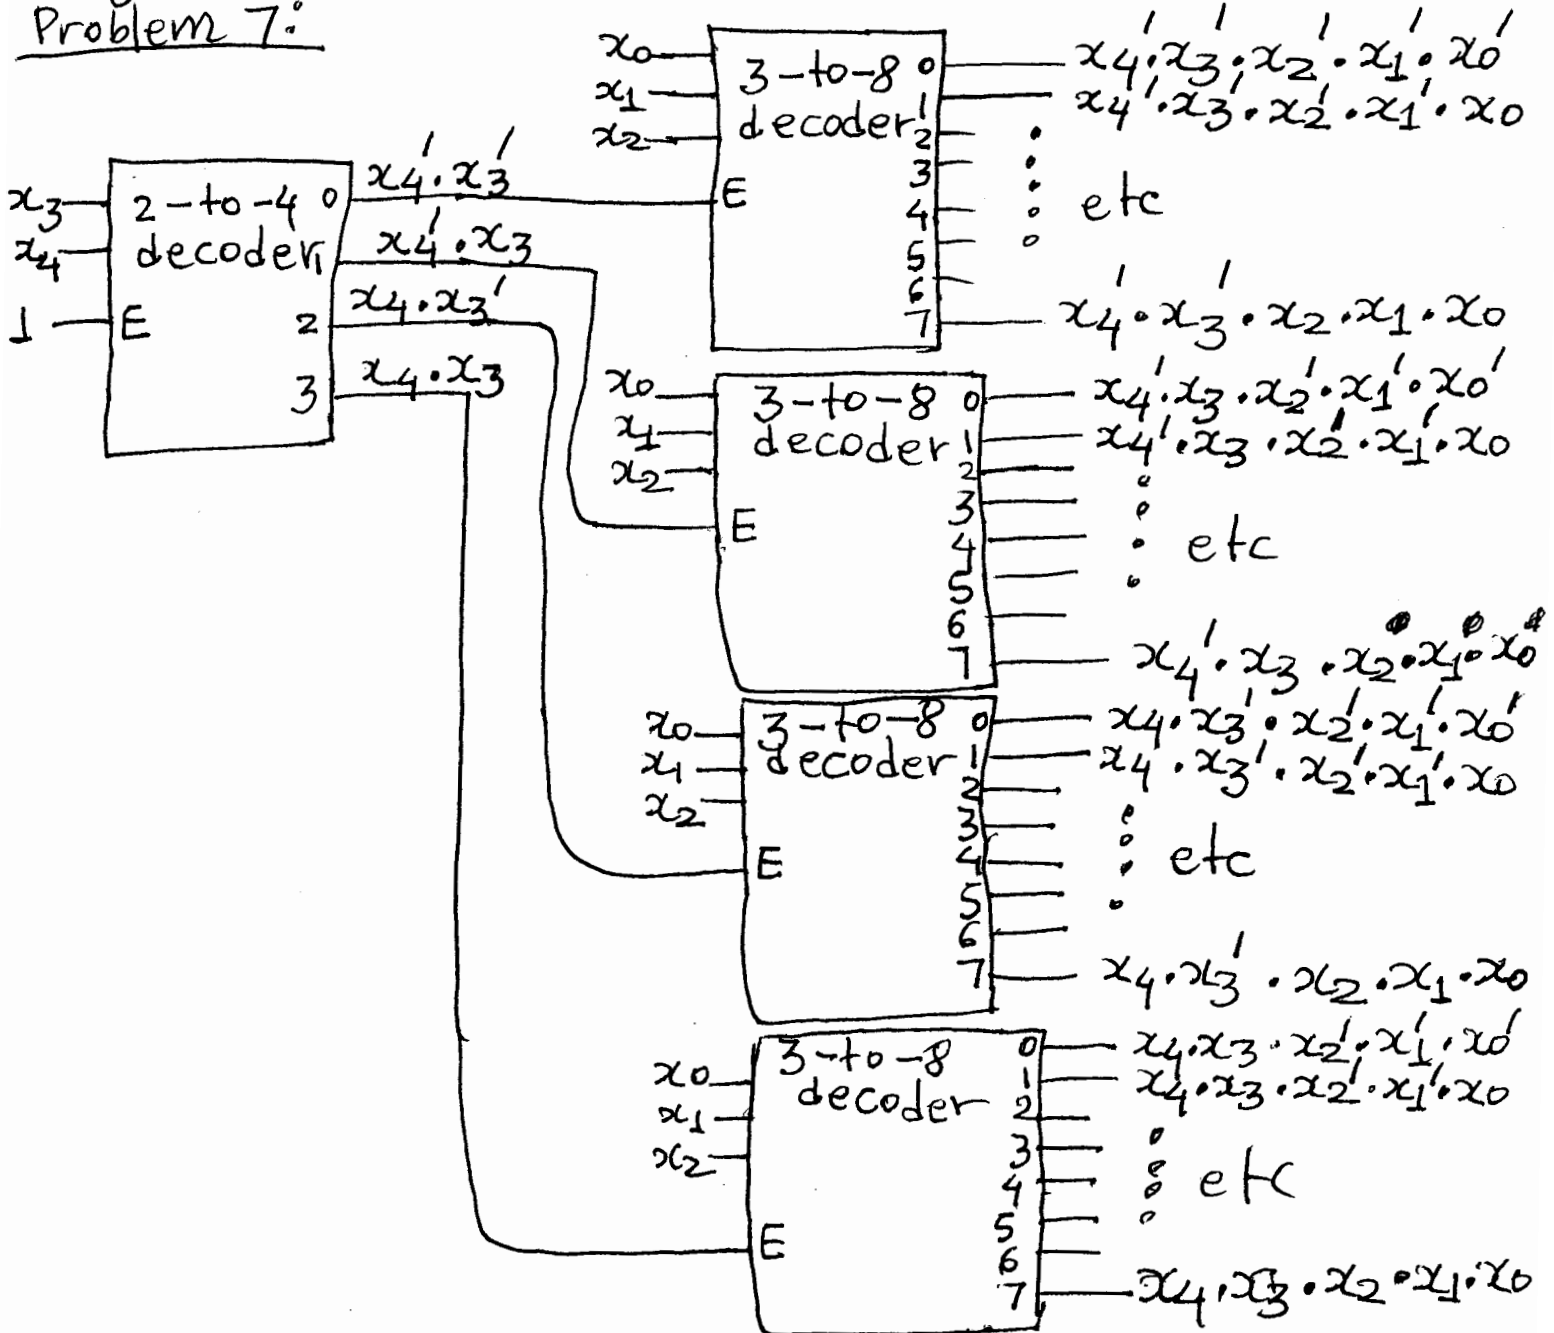 Problem 7:
x3
x4
1
2-to-4
decoder
E
0
1
2
3
x4'.x3'
x4'.x3
x4.x3'
x4.x3
x0
x1
x2
3-to-8
decoder
E
0
1
2
3
4
5
6
7
x4'.x3'.x2'.x1'.x0'
x4'.x3'.x2'.x1'.x0
etc
x4'.x3'.x2.x1.x0
x0
x1
x2
3-to-8
decoder
E
0
1
2
3
4
5
6
7
x4'.x3.x2'.x1'.x0'
x4'.x3.x2'.x1'.x0
etc
x4'.x3.x2.x1.x0
x0
x1
x2
3-to-8
decoder
E
0
1
2
3
4
5
6
7
x4.x3'.x2'.x1'.x0'
x4.x3'.x2'.x1'.x0
etc
x4.x3'.x2.x1.x0
x0
x1
x2
3-to-8
decoder
E
0
1
2
3
4
5
6
7
x4.x3.x2'.x1'.x0'
x4.x3.x2'.x1'.x0
etc
x4.x3.x2.x1.x0